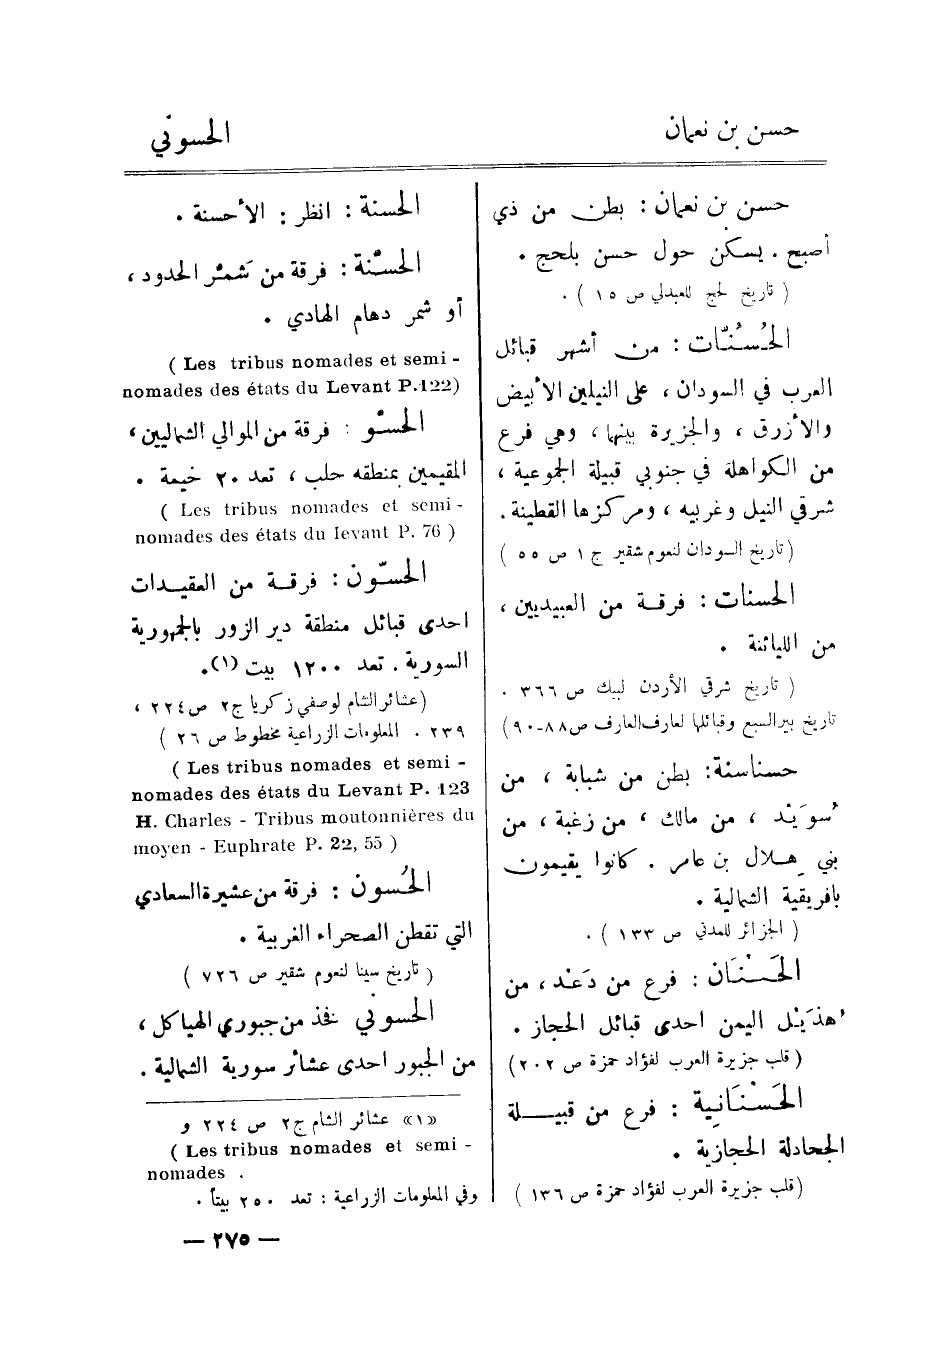 حسن بن نعمان
الحسوني
حسن بن نعمان : بطن من ذي
أصبح . يسكن حول حسن بلحج .
( تاريخ لحج للعبدلي ص ١٥ ) .
الحُسُنّات : من أشهر قبائل
العرب في السودان ، على النيلين الأبيض
والأزرق ، والجزيرة بينها ، وهي فرع
من الكواهلة في جنوبي قبيلة الجموعية ،
شرقي النيل وغربيه ، ومركزها القطينة .
( تاريخ السودان لنعوم شقير ج ١ ص ٥٥ )
الحسنات : فرقة من العبيديين ،
من اللياثنة .
( تاريخ شرقي الأردن لبيك ص ٣٦٦ .
تاريخ بير السبع وقبائلها لعارف العارف ص ٨٨-٩٠ )
حسناسنة : بطن من شبابة ، من
سُوَيْد ، من مالك ، من زغبة ، من
بني هلال بن عامر . كانوا يقيمون
بافريقية الشمالية .
( الجزائر للمدني ص ١٣٣ ) .
الحَسْنَان : فرع من دَعْد ، من
هُذَيْل اليمن احدى قبائل الحجاز .
( قلب جزيرة العرب لفؤاد حمزة ص ٢٠٢ )
الحَسْنَانِية : فرع من قبيلة
الجحادلة الحجازية .
( قلب جزيرة العرب لفؤاد حمزة ص ١٣٦ )
الحسنة : انظر : الأحسنة .
الحسْنة : فرقة من شَمَّر الحدود ،
أو شمر دهام الهادي .
( Les tribus nomades et semi -
nomades des états du Levant P.122)
الحسْو : فرقة من الموالي الشماليين ،
المقيمين بمنطقه حلب ، تعد ٢٠ خيمة .
( Les tribus nomades et semi -
nomades des états du Ievant P. 76 )
الحسّون : فرقة من العقيدات
احدى قبائل منطقة دير الزور بالجمهورية
السورية . تعد ١٢٠٠ بيت (١) .
( عشائر الشام لوصفي زكريا ج٢ ص ٢٢٤ ،
٢٣٩ . المعلومات الزراعية مخطوط ص ٢٦ )
( Les tribus nomades et semi -
nomades des états du Levant P. 123
H. Charles - Tribus moutonnières du
moyen - Euphrate P. 22, 55 )
الحُسون : فرقة من عشيرة السعادي
التي تقطن الصحراء الغربية .
( تاريخ سينا لنعوم شقير ص ٧٢٦ )
الحسوني فخذ من جبوري الهياكل ،
من الجبور احدى عشائر سورية الشمالية .
«١» عشائر الشام ج٢ ص ٢٢٤ و
( Les tribus nomades et semi -
nomades .
وفي المعلومات الزراعية : تعد ٢٥٠ بيتاً .
— ٢٧٥ —